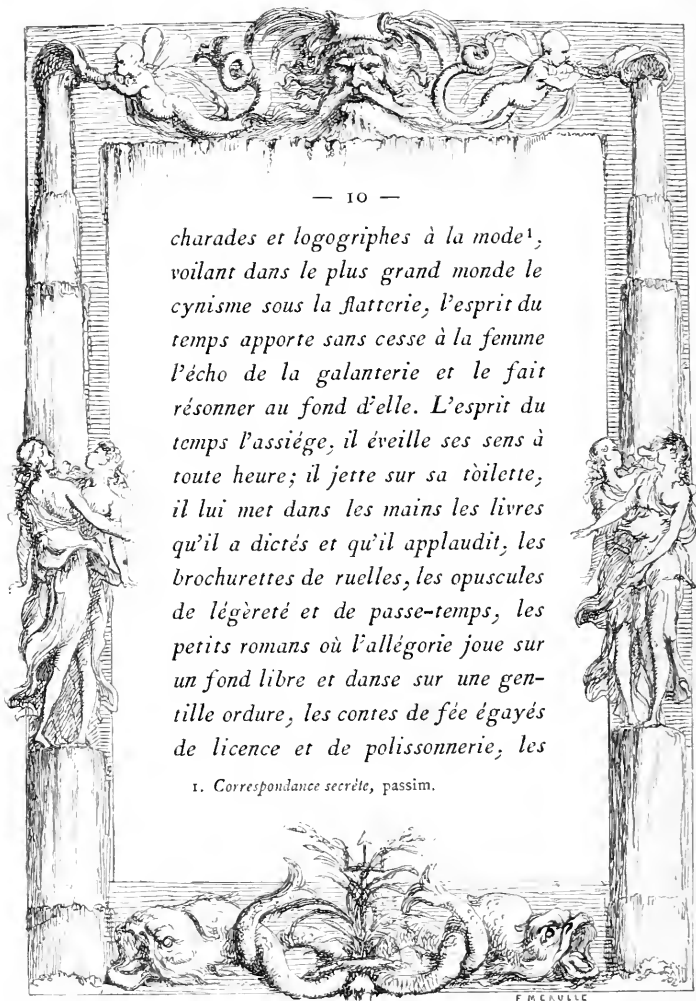 — 10 —
charades et logogriphes à la mode¹,
voilant dans le plus grand monde le
cynisme sous la flatterie, l'esprit du
temps apporte sans cesse à la femme
l'écho de la galanterie et le fait
résonner au fond d'elle. L'esprit du
temps l'assiége, il éveille ses sens à
toute heure; il jette sur sa toilette,
il lui met dans les mains les livres
qu'il a dictés et qu'il applaudit, les
brochurettes de ruelles, les opuscules
de légèreté et de passe-temps, les
petits romans où l'allégorie joue sur
un fond libre et danse sur une gen-
tille ordure, les contes de fée égayés
de licence et de polissonnerie, les
1. Correspondance secrète, passim.